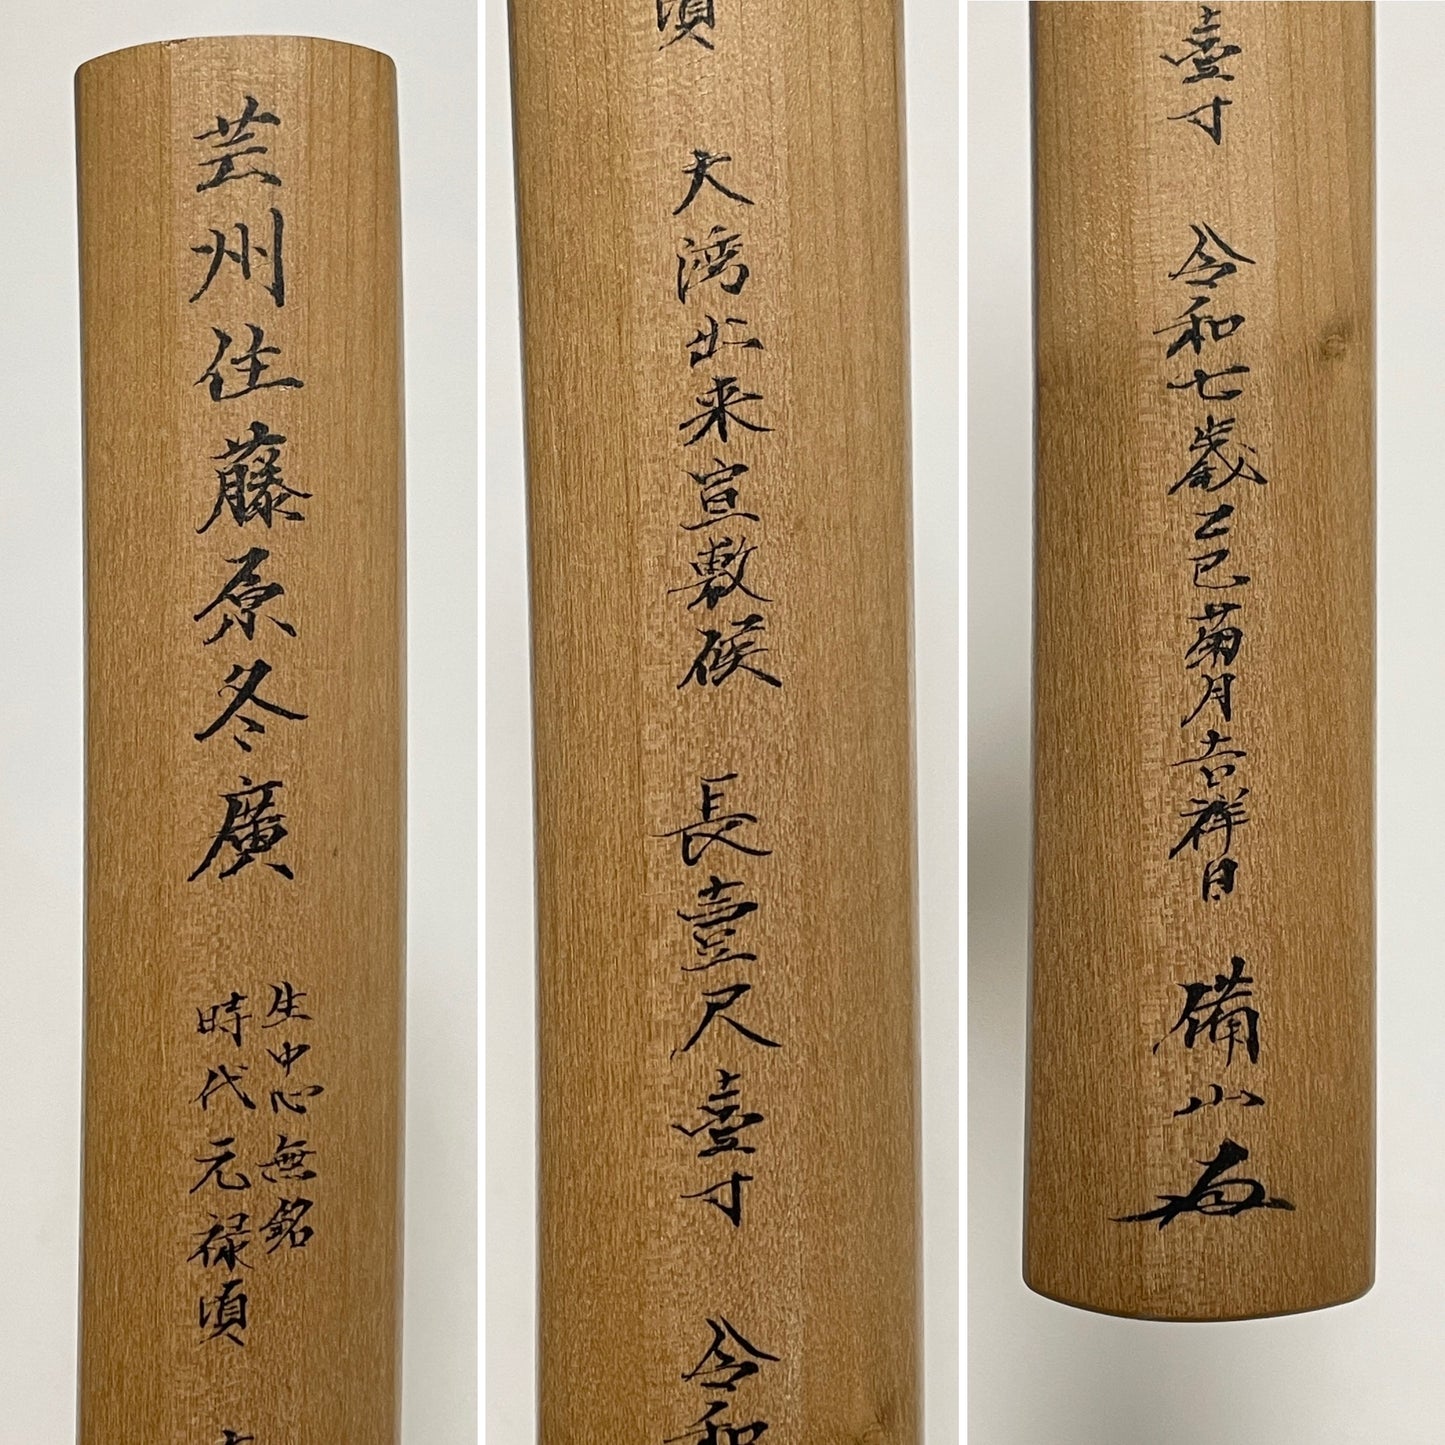 芸州住藤原冬廣
生中心無銘
時代元禄頃
頃
大湾出来宜敷候
長壹尺壹寸
令和
壹寸
令和七歳乙巳菊月吉祥日
備山